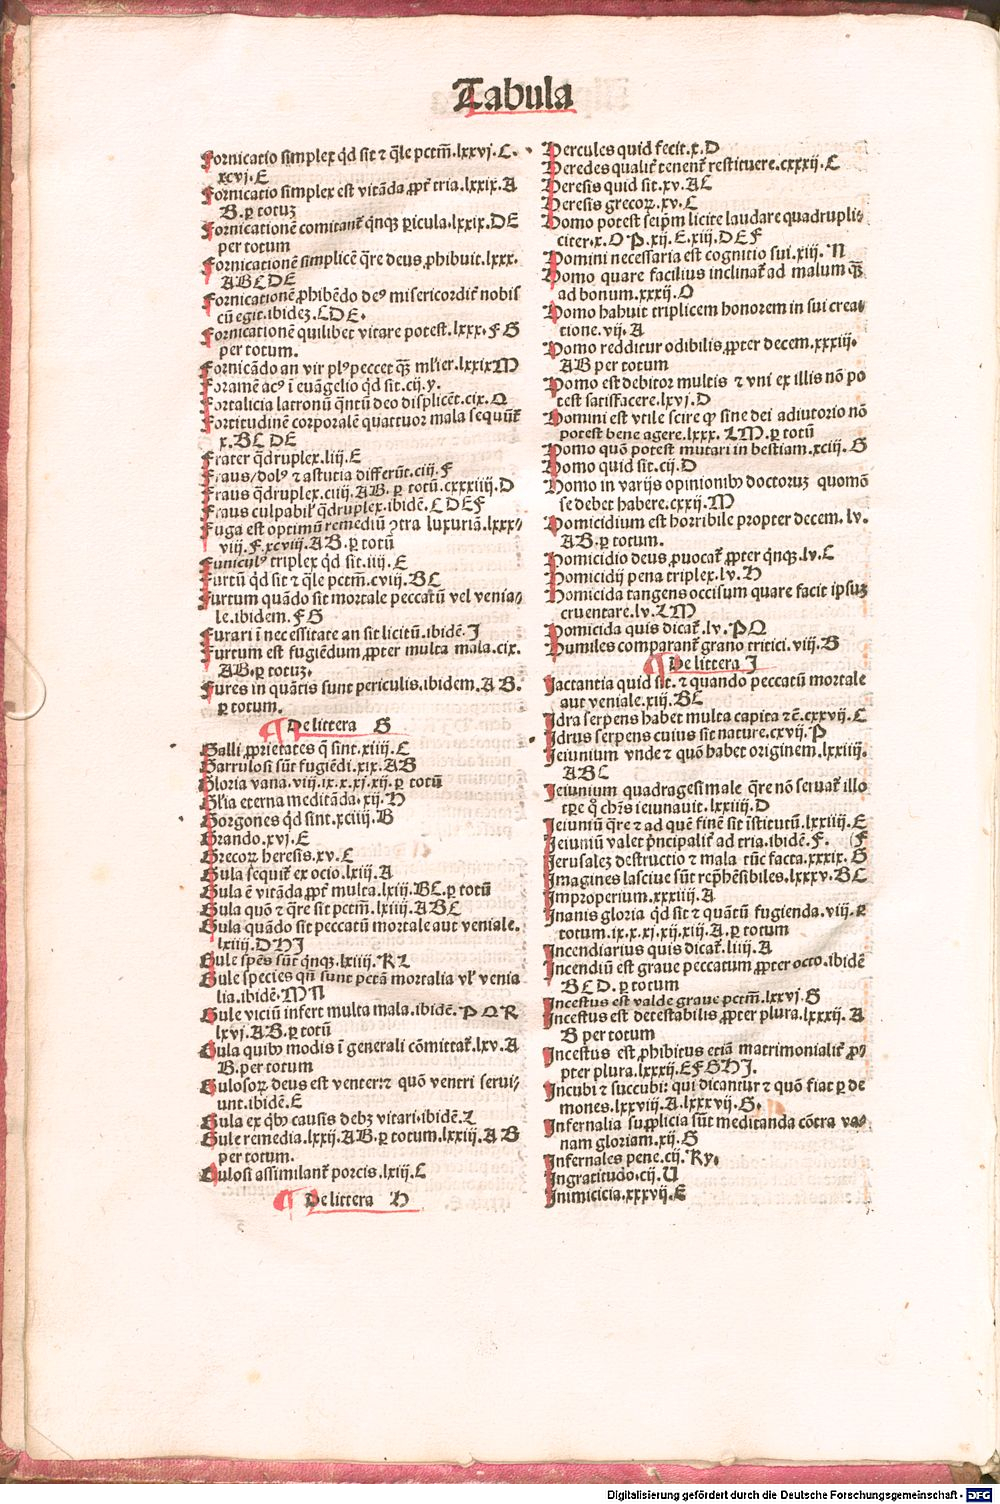 Tabula
Fornicatio simplex q̄d sit ⁊ q̄le pctm̄.lxxvj.C.
xcvj.E
Fornicatio simplex est vitāda ꝓpt̄ tria.lxxix.A
B.ꝑ totuꝫ
Fornicationē comitant̄ q̄nqꝫ ꝑicula.lxxix.DE
per totum
Fornicationē simplicē q̄re deus ꝓhibuit.lxxx.
ABCDE
Fornicationē ꝓhibēdo deꝰ misericordit̄ nobis
cū egit.ibideꝫ.CDE.
Fornicationē quilibet vitare potest.lxxx.FG
per totum.
Fornicādo an vir plꝰ peccet qꝫ mlier.lxxixM
Foramē acꝰ ī euāgelio q̄d sit.cij.y.
Fortalicia latronū q̄ntū deo displicēt.cix.Q
Fortitudinē corporalē quattuor mala sequūt̄
x.BC DE
Frater q̄druplex.liij.E
Fraus/dolꝰ ⁊ astutia differūt.ciij.F
Fraus q̄druplex.ciiij.AB.ꝑ totū.cxxxiiij.D
Fraus culpabil' q̄druplex.ibidē.CDEF
Fuga est optimū remediū ꝯtra luxuriā.lxxx-
viij.F.xcviij.AB.ꝑ totū
Funiculꝰ triplex q̄d sit.iij.E
Furtū q̄d sit ⁊ q̄le pctm̄.cviij.BC
Furtum quādo sit mortale peccatū vel venia-
le.ibidem.FG
Furari ī necessitate an sit licitū.ibidē.J
Furtum est fugiēdum ꝓpter multa mala.cix.
AB.ꝑ totuꝫ.
Fures in quātis sunt periculis.ibidem.AB.
ꝑ totum.
¶ De littera G
Galli ꝓprietates q̄ sint.xiiij.C
Garrulosi sūt fugiēdi.xix.AB
Gloria vana.viij.ix.x.xj.xij.ꝑ totū
Gl'ia eterna meditāda.xij.H
Gorgones q̄d sint.xciiij.B
Grando.xvj.E
Grecoꝝ heresis.xv.C
Gula sequit̄ ex ocio.lxiij.A
Gula ē vitāda ꝓpt̄ multa.lxiij.BC.ꝑ totū
Gula quō ⁊ q̄re sit pctm̄.lxiiij.ABC
Gula quādo sit peccatū mortale aut veniale.
lxiiij.DHJ
Gule spēs sūt q̄nqꝫ.lxiiij.KL
Gule species qn̄ sunt pctā mortalia vl' venia
lia.ibidē.MN
Gule viciū infert multa mala.ibidē.PQR
lxvj.AB.ꝑ totū
Gula quibꝰ modis ī generali cōmittat̄.lxv.A
B.per totum
Gulosoꝝ deus est venter:⁊ quō ventri serui-
unt.ibidē.E
Gula ex q̄bꝰ causis debꝫ vitari.ibidē.L
Gule remedia.lxxij.AB.ꝑ totum.lxxiij.AB
per totum.
Gulosi assimilant̄ porcis.lxiij.C
¶ De littera H
Hercules quid fecit.x.D
Heredes qualit̄ tenent̄ restituere.cxxxij.C
Heresis quid sit.xv.AC
Heresis grecoꝝ.xv.C
Homo potest seip̄m licite laudare quadrupli-
citer.x.OP.xij.E.xiij.DEF
Homini necessaria est cognitio sui.xiij.N
Homo quare facilius inclinat̄ ad malum qꝫ
ad bonum.xxxij.O
Homo habuit triplicem honorem in sui crea-
tione.vij.A
Homo redditur odibilis ꝓpter decem.xxxiij.
AB per totum
Homo est debitor multis ⁊ vni ex illis nō po
test satisfacere.lxvj.D
Homini est vtile scire ꝙ sine dei adiutorio nō
potest bene agere.lxxx.LM.ꝑ totū
Homo quō potest mutari in bestiam.xciij.G
Homo quid sit.cij.D
Homo in varijs opinionibꝰ doctoruꝫ quomō
se debet habere.cxxij.M
Homicidium est horribile propter decem.lv.
AB.ꝑ totum.
Homicidio deus ꝓuocat̄ ꝓpter q̄nqꝫ.lv.C
Homicidij pena triplex.lv.H
Homicida tangens occisum quare facit ipsuꝫ
cruentare.lv.LM
Homicida quis dicat̄.lv.PQ
Humiles comparant̄ grano tritici.viij.B
¶ De littera J
Jactantia quid sit.⁊ quando peccatū mortale
aut veniale.xiij.BC
Jdra serpens habet multa capita ⁊c̄.cxxvij.C
Jdrus serpens cuius sit nature.cxvij.P
Jeiunium vnde ⁊ quō habet originem.lxxiiij.
ABC
Jeiunium quadragesimale q̄re nō seruat̄ illo
tp̄e q̄ chr̄s ieiunauit.lxxiiij.D
Jeiuniū q̄re ⁊ ad quē finē sit īstitutū.lxxiiij.E
Jeiuniū valet p̄ncipalit̄ ad tria.ibidē.F. (F
Jerusaleꝫ destructio ⁊ mala tūc facta.xxxix.G
Jmagines lasciue sūt rep̄hēsibiles.lxxxv.BC
Jmproperium.xxxiiij.A
Jnanis gloria q̄d sit ⁊ quātū fugienda.viij.ꝑ
totum.ix.x.xj.xij.xiij.A.ꝑ totum
Jncendiarius quis dicat̄.liiij.A
Jncendiū est graue peccatum ꝓpter octo.ibidē
BCD.ꝑ totum
Jncestus est valde graue pctm̄.lxxvj.G
Jncestus est detestabilis ꝓpter plura.lxxxij.A
B per totum
Jncestus est ꝓhibitus etiā matrimonialit̄ ꝓ-
pter plura.lxxxij.EFGHJ.
Jncubi ⁊ succubi: qui dicantur ⁊ quō fiat ꝑ de
mones.lxxviij.A.lxxxvij.G.
Jnfernalia supplicia sūt meditanda cōtra va-
nam gloriam.xij.G
Jnfernales pene.cij.Ky.
Jngratitudo.cij.U
Jnimicicia.xxxvij.E
Digitalisierung gefördert durch die Deutsche Forschungsgemeinschaft - DFG